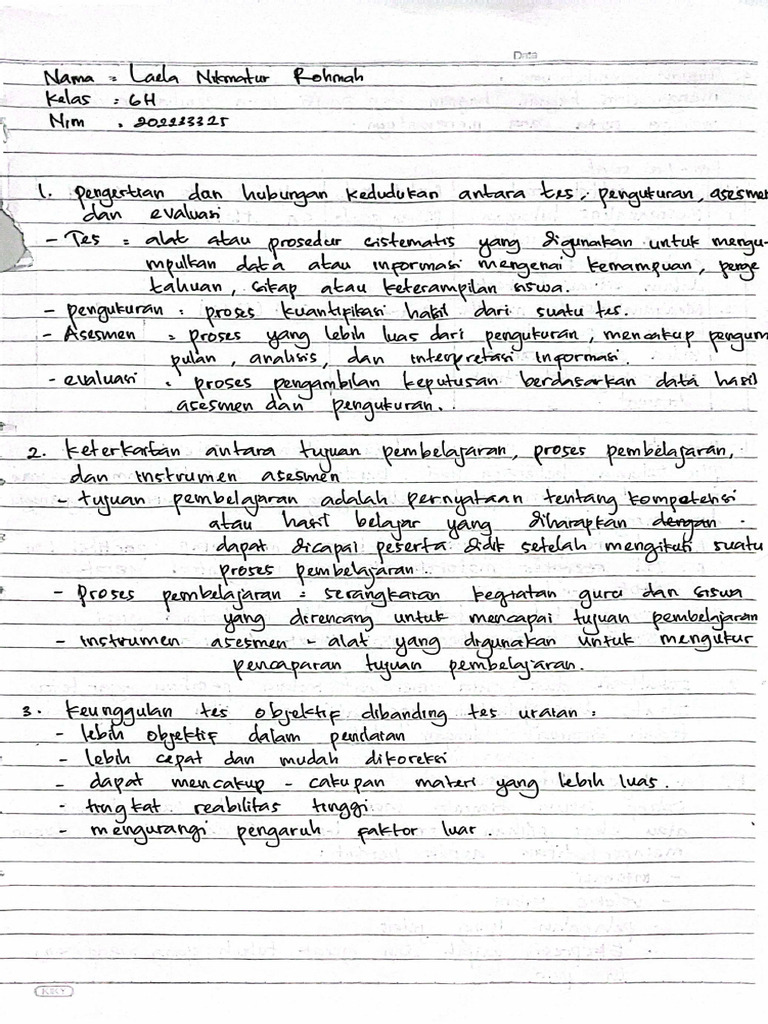 Date
Nama : Laela Nikmatur Rohmah
Kelas : 6H
Nim : 202233325
1. pengertian dan hubungan kedudukan antara tes, pengukuran, asesmen
dan evaluasi
- Tes = alat atau prosedur sistematis yang digunakan untuk mengu-
mpulkan data atau informasi mengenai kemampuan, penge
tahuan, sikap atau keterampilan siswa.
- pengukuran : proses kuantifikasi hasil dari suatu tes.
- Asesmen = proses yang lebih luas dari pengukuran, mencakup pengum
pulan, analisis, dan interpretasi informasi.
- evaluasi : proses pengambilan keputusan berdasarkan data hasil
asesmen dan pengukuran.
2. keterkaitan antara tujuan pembelajaran, proses pembelajaran,
dan instrumen asesmen
- tujuan pembelajaran adalah pernyataan tentang kompetensi
atau hasil belajar yang diharapkan dengan
dapat dicapai peserta didik setelah mengikuti suatu
proses pembelajaran.
- Proses pembelajaran = serangkaian kegiatan guru dan siswa
yang dirancang untuk mencapai tujuan pembelajaran
- instrumen asesmen - alat yang digunakan untuk mengukur
pencapaian tujuan pembelajaran.
3. keunggulan tes objektif dibanding tes uraian :
- lebih objektif dalam penilaian
- lebih cepat dan mudah dikoreksi
- dapat mencakup - cakupan materi yang lebih luas.
- tingkat reabilitas tinggi
- mengurangi pengaruh faktor luar.
KIKY